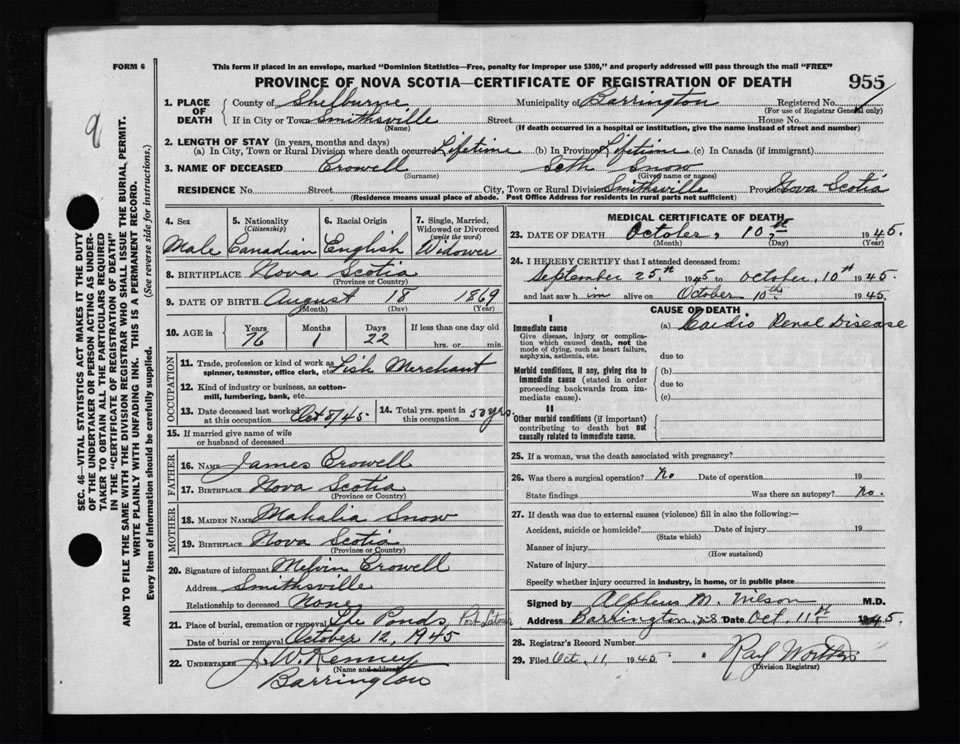 FORM 6
This form if placed in an envelope, marked "Dominion Statistics—Free, penalty for improper use $300," and properly addressed will pass through the mail "FREE"
PROVINCE OF NOVA SCOTIA—CERTIFICATE OF REGISTRATION OF DEATH 955
1. PLACE OF DEATH County of Shelburne Municipality of Barrington Registered No.
(For use of Registrar General only)
If in City or Town Smithsville Street House No.
(Name) (If death occurred in a hospital or institution, give the name instead of street and number)
2. LENGTH OF STAY (in years, months and days)
(a) In City, Town or Rural Division where death occurred Lifetime (b) In Province Lifetime (c) In Canada (if immigrant)
3. NAME OF DECEASED Crowell Seth Snow
(Surname) (Given name or names)
RESIDENCE No. Street City, Town or Rural Division Smithsville Province Nova Scotia
(Residence means usual place of abode. Post Office Address for residents in rural parts not sufficient)
4. Sex Male
5. Nationality (Citizenship) Canadian
6. Racial Origin English
7. Single, Married, Widowed or Divorced (write the word) Widower
8. BIRTHPLACE Nova Scotia
(Province or Country)
9. DATE OF BIRTH August 18 1869
(Month) (Day) (Year)
10. AGE in Years 76 Months 1 Days 22 If less than one day old hrs. or min.
OCCUPATION
11. Trade, profession or kind of work as spinner, teamster, office clerk, etc. Fish Merchant
12. Kind of industry or business, as cotton-mill, lumbering, bank, etc.
13. Date deceased last worked at this occupation Oct 8/45
14. Total yrs. spent in this occupation 50 yrs.
15. If married give name of wife or husband of deceased
FATHER
16. NAME James Crowell
17. BIRTHPLACE Nova Scotia
(Province or Country)
MOTHER
18. MAIDEN NAME Mahalia Snow
19. BIRTHPLACE Nova Scotia
(Province or Country)
20. Signature of informant Melvin Crowell
Address Smithsville
Relationship to deceased None
21. Place of burial, cremation or removal The Ponds, Port Latour
Date of burial or removal October 12, 1945
22. UNDERTAKER J. W. Kenney
(Name and address)
Barrington
MEDICAL CERTIFICATE OF DEATH
23. DATE OF DEATH October, 10th 1945.
(Month) (Day) (Year)
24. I HEREBY CERTIFY that I attended deceased from:
September 25th 1945 to October, 10th 1945.
and last saw him alive on October 10th 1945.
CAUSE OF DEATH
I
Immediate cause (a) Cardio Renal Disease
Give disease, injury or complication which caused death, not the mode of dying, such as heart failure, asphyxia, asthenia, etc.
due to
Morbid conditions, if any, giving rise to immediate cause (stated in order proceeding backwards from immediate cause).
(b)
due to
(c)
II
Other morbid conditions (if important) contributing to death but not causally related to immediate cause.
25. If a woman, was the death associated with pregnancy?
26. Was there a surgical operation? No Date of operation 19
State findings Was there an autopsy? No.
27. If death was due to external causes (violence) fill in also the following:—
Accident, suicide or homicide? Date of injury 19
(State which)
Manner of injury
(How sustained)
Nature of injury
Specify whether injury occurred in industry, in home, or in public place
Signed by Alpheus M. Wilson M.D.
Address Barrington, N.S. Date Oct. 11th 1945.
28. Registrar's Record Number
29. Filed Oct. 11, 1945.
(Division Registrar)
SEC. 46—VITAL STATISTICS ACT MAKES IT THE DUTY
OF THE UNDERTAKER OR PERSON ACTING AS UNDER-
TAKER TO OBTAIN ALL THE PARTICULARS REQUIRED
IN THE "CERTIFICATE OF REGISTRATION OF DEATH"
AND TO FILE THE SAME WITH THE DIVISION REGISTRAR WHO SHALL ISSUE THE BURIAL PERMIT.
WRITE PLAINLY WITH UNFADING INK. THIS IS A PERMANENT RECORD.
Every item of information should be carefully supplied. (See reverse side for instructions.)